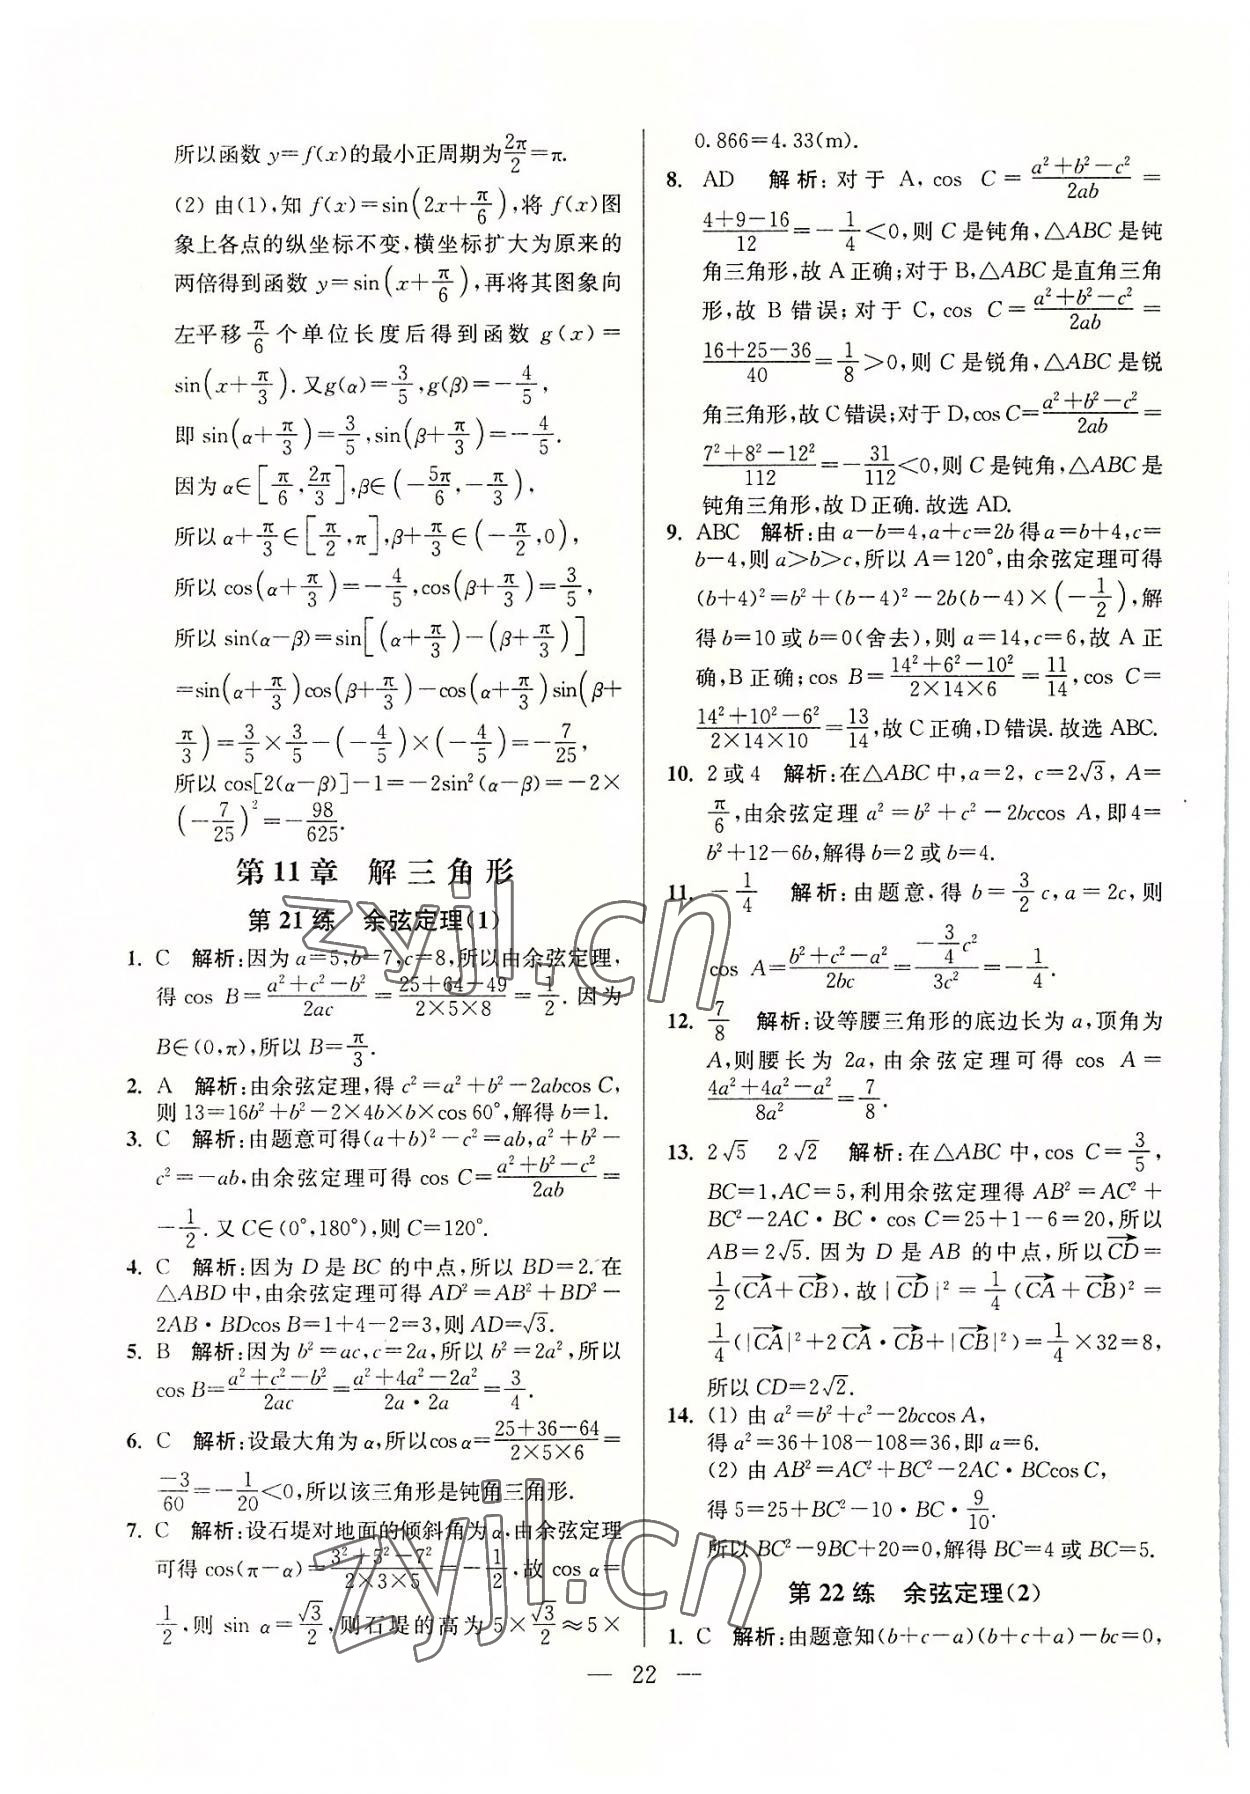 所以函数 y=f(x)的最小正周期为2π/2=π.
(2) 由(1),知 f(x)=sin(2x+π/6),将 f(x)图
象上各点的纵坐标不变,横坐标扩大为原来的
两倍得到函数 y=sin(x+π/6),再将其图象向
左平移 π/6 个单位长度后得到函数 g(x)=
sin(x+π/3).又g(α)=3/5,g(β)=-4/5,
即 sin(α+π/3)=3/5,sin(β+π/3)=-4/5.
因为 α∈[π/6,2π/3],β∈(-5π/6,-π/3),
所以 α+π/3∈[π/2,π],β+π/3∈(-π/2,0),
所以 cos(α+π/3)=-4/5,cos(β+π/3)=3/5,
所以 sin(α-β)=sin[(α+π/3)-(β+π/3)]
=sin(α+π/3)cos(β+π/3)-cos(α+π/3)sin(β+
π/3)=3/5×3/5-(-4/5)×(-4/5)=-7/25,
所以 cos[2(α-β)]-1=-2sin²(α-β)=-2×
(-7/25)²=-98/625.
第11章 解三角形
第21练 余弦定理(1)
1. C 解析:因为 a=5,b=7,c=8,所以由余弦定理,
得 cos B=(a²+c²-b²)/2ac=(25+64-49)/(2×5×8)=1/2. 因为
B∈(0,π),所以 B=π/3.
2. A 解析:由余弦定理,得 c²=a²+b²-2abcos C,
则 13=16b²+b²-2×4b×b×cos 60°,解得 b=1.
3. C 解析:由题意可得(a+b)²-c²=ab,a²+b²-
c²=-ab.由余弦定理可得 cos C=(a²+b²-c²)/2ab=
-1/2.又 C∈(0°,180°),则 C=120°.
4. C 解析:因为 D 是 BC 的中点,所以 BD=2.在
△ABD 中,由余弦定理可得 AD²=AB²+BD²-
2AB·BDcos B=1+4-2=3,则 AD=√3.
5. B 解析:因为 b²=ac,c=2a,所以 b²=2a²,所以
cos B=(a²+c²-b²)/2ac=(a²+4a²-2a²)/(2a·2a)=3/4.
6. C 解析:设最大角为 α,所以cos α=(25+36-64)/(2×5×6)=
-3/60=-1/20<0,所以该三角形是钝角三角形.
7. C 解析:设石堤对地面的倾斜角为 α,由余弦定理
可得 cos(π-α)=(3²+5²-7²)/(2×3×5)=-1/2,故 cos α=
1/2,则 sin α=√3/2,则石堤的高为 5×√3/2≈5×
0.866=4.33(m).
8. AD 解析:对于 A,cos C=(a²+b²-c²)/2ab=
(4+9-16)/12=-1/4<0,则 C 是钝角,△ABC 是钝
角三角形,故 A 正确;对于 B,△ABC 是直角三角
形,故 B 错误;对于 C,cos C=(a²+b²-c²)/2ab=
(16+25-36)/40=1/8>0,则 C 是锐角,△ABC 是锐
角三角形,故 C 错误;对于 D,cos C=(a²+b²-c²)/2ab=
(7²+8²-12²)/112=-31/112<0,则 C 是钝角,△ABC 是
钝角三角形,故 D 正确.故选 AD.
9. ABC 解析:由 a-b=4,a+c=2b 得 a=b+4,c=
b-4,则 a>b>c,所以 A=120°,由余弦定理可得
(b+4)²=b²+(b-4)²-2b(b-4)×(-1/2),解
得 b=10 或 b=0(舍去),则 a=14,c=6,故 A 正
确,B 正确;cos B=(14²+6²-10²)/(2×14×6)=11/14,cos C=
(14²+10²-6²)/(2×14×10)=13/14,故 C 正确,D 错误.故选 ABC.
10. 2或4 解析:在△ABC 中,a=2, c=2√3, A=
π/6,由余弦定理 a²=b²+c²-2bccos A,即 4=
b²+12-6b,解得 b=2 或 b=4.
11. -1/4 解析:由题意,得 b=3/2 c,a=2c,则
cos A=(b²+c²-a²)/2bc=(-3/4 c²)/3c²=-1/4.
12. 7/8 解析:设等腰三角形的底边长为 a,顶角为
A,则腰长为 2a,由余弦定理可得 cos A=
(4a²+4a²-a²)/8a²=7/8.
13. 2√5 2√2 解析:在△ABC 中,cos C=3/5,
BC=1,AC=5,利用余弦定理得 AB²=AC²+
BC²-2AC·BC·cos C=25+1-6=20,所以
AB=2√5.因为 D 是 AB 的中点,所以CD→=
1/2(CA→+CB→),故|CD→|²=1/4(CA→+CB→)²=
1/4(|CA→|²+2CA→·CB→+|CB→|²)=1/4×32=8,
所以 CD=2√2.
14. (1) 由 a²=b²+c²-2bccos A,
得 a²=36+108-108=36,即 a=6.
(2) 由 AB²=AC²+BC²-2AC·BCcos C,
得 5=25+BC²-10·BC·9/10.
所以 BC²-9BC+20=0,解得 BC=4 或 BC=5.
第22练 余弦定理(2)
1. C 解析:由题意知(b+c-a)(b+c+a)-bc=0,
— 22 —
zyjl.cn
zyjl.cn